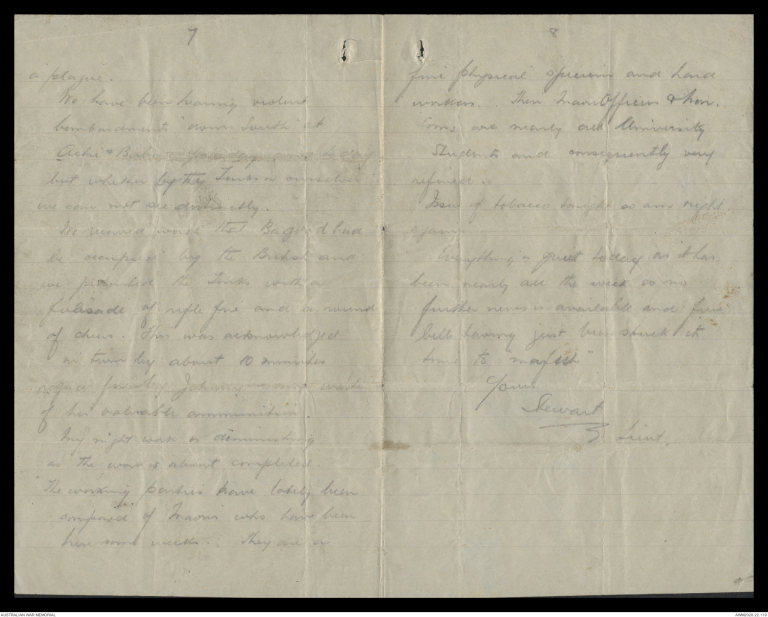 7
a plague.
We have been hearing violent
bombardment "down South" at
Achi Baba
but whether by the Turks or ourselves
we can not see distinctly.
We received word that Bagdad had
be occupied by the British and
we the Turks with a
fusilade of rifle fire and a round
of cheers. This was acknowledged
in turn by about 10 minutes
rapid fire by Johnny
of his valuable ammunition.
My night work is diminishing
as the work is about completed.
The working parties have lately been
composed of Maoris who have been
here some weeks. They are a
8
fine physical specimens and hard
workers. Their Maori Officers & Non.
Coms are nearly all University
Students and consequently very
refined.
Issue of tobacco tonight so am right
again.
Everything is quiet today as it has
been nearly all the week so no
further news is available and five
bells having just been struck it
time to
Yours
Stewart
Lieut.
AUSTRALIAN WAR MEMORIAL